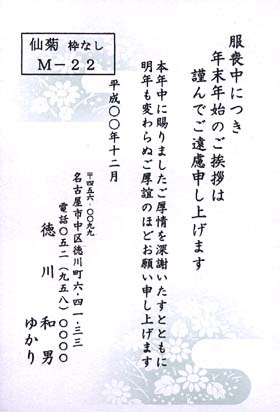 仙菊 枠なし
M－22
服喪中につき
年末年始のご挨拶は
謹んでご遠慮申し上げます
本年中に賜りましたご厚情を深謝いたすとともに
明年も変わらぬご厚誼のほどお願い申し上げます
平成〇〇年十二月
〒四五六-〇〇九九
名古屋市中区徳川町六-四一-三三
電話〇五二(九五八)〇〇〇〇
徳川 和男
ゆかり